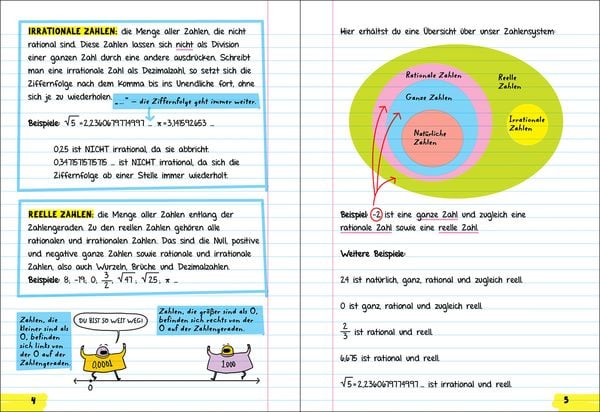 IRRATIONALE ZAHLEN: die Menge aller Zahlen, die nicht
rational sind. Diese Zahlen lassen sich nicht als Division
einer ganzen Zahl durch eine andere ausdrücken. Schreibt
man eine irrationale Zahl als Dezimalzahl, so setzt sich die
Ziffernfolge nach dem Komma bis ins Unendliche fort, ohne
sich je zu wiederholen.
„...“ – die Ziffernfolge geht immer weiter.
Beispiele: √5 = 2,2360679774997 ... π = 3,14592653 ...
0,25 ist NICHT irrational, da sie abbricht.
0,3471571571575 ... ist NICHT irrational, da sich die
Ziffernfolge ab einer Stelle immer wiederholt.
REELLE ZAHLEN: die Menge aller Zahlen entlang der
Zahlengeraden. Zu den reellen Zahlen gehören alle
rationalen und irrationalen Zahlen. Das sind die Null, positive
und negative ganze Zahlen sowie rationale und irrationale
Zahlen, also auch Wurzeln, Brüche und Dezimalzahlen.
Beispiele: 8, -19, 0, 3/2, √47, √25, π ...
Zahlen, die
kleiner sind als
0, befinden
sich links von
der 0 auf der
Zahlengeraden.
DU BIST SO WEIT WEG!
Zahlen, die größer sind als 0,
befinden sich rechts von der
0 auf der Zahlengeraden.
0,0001
1.000
0
4
Hier erhältst du eine Übersicht über unser Zahlensystem:
Rationale Zahlen
Reelle
Zahlen
Ganze Zahlen
Irrationale
Zahlen
Natürliche
Zahlen
Beispiel: -2 ist eine ganze Zahl und zugleich eine
rationale Zahl sowie eine reelle Zahl.
Weitere Beispiele:
24 ist natürlich, ganz, rational und zugleich reell.
0 ist ganz, rational und zugleich reell.
2/3 ist rational und reell.
6,675 ist rational und reell.
√5 = 2,2360679774997 ... ist irrational und reell.
5